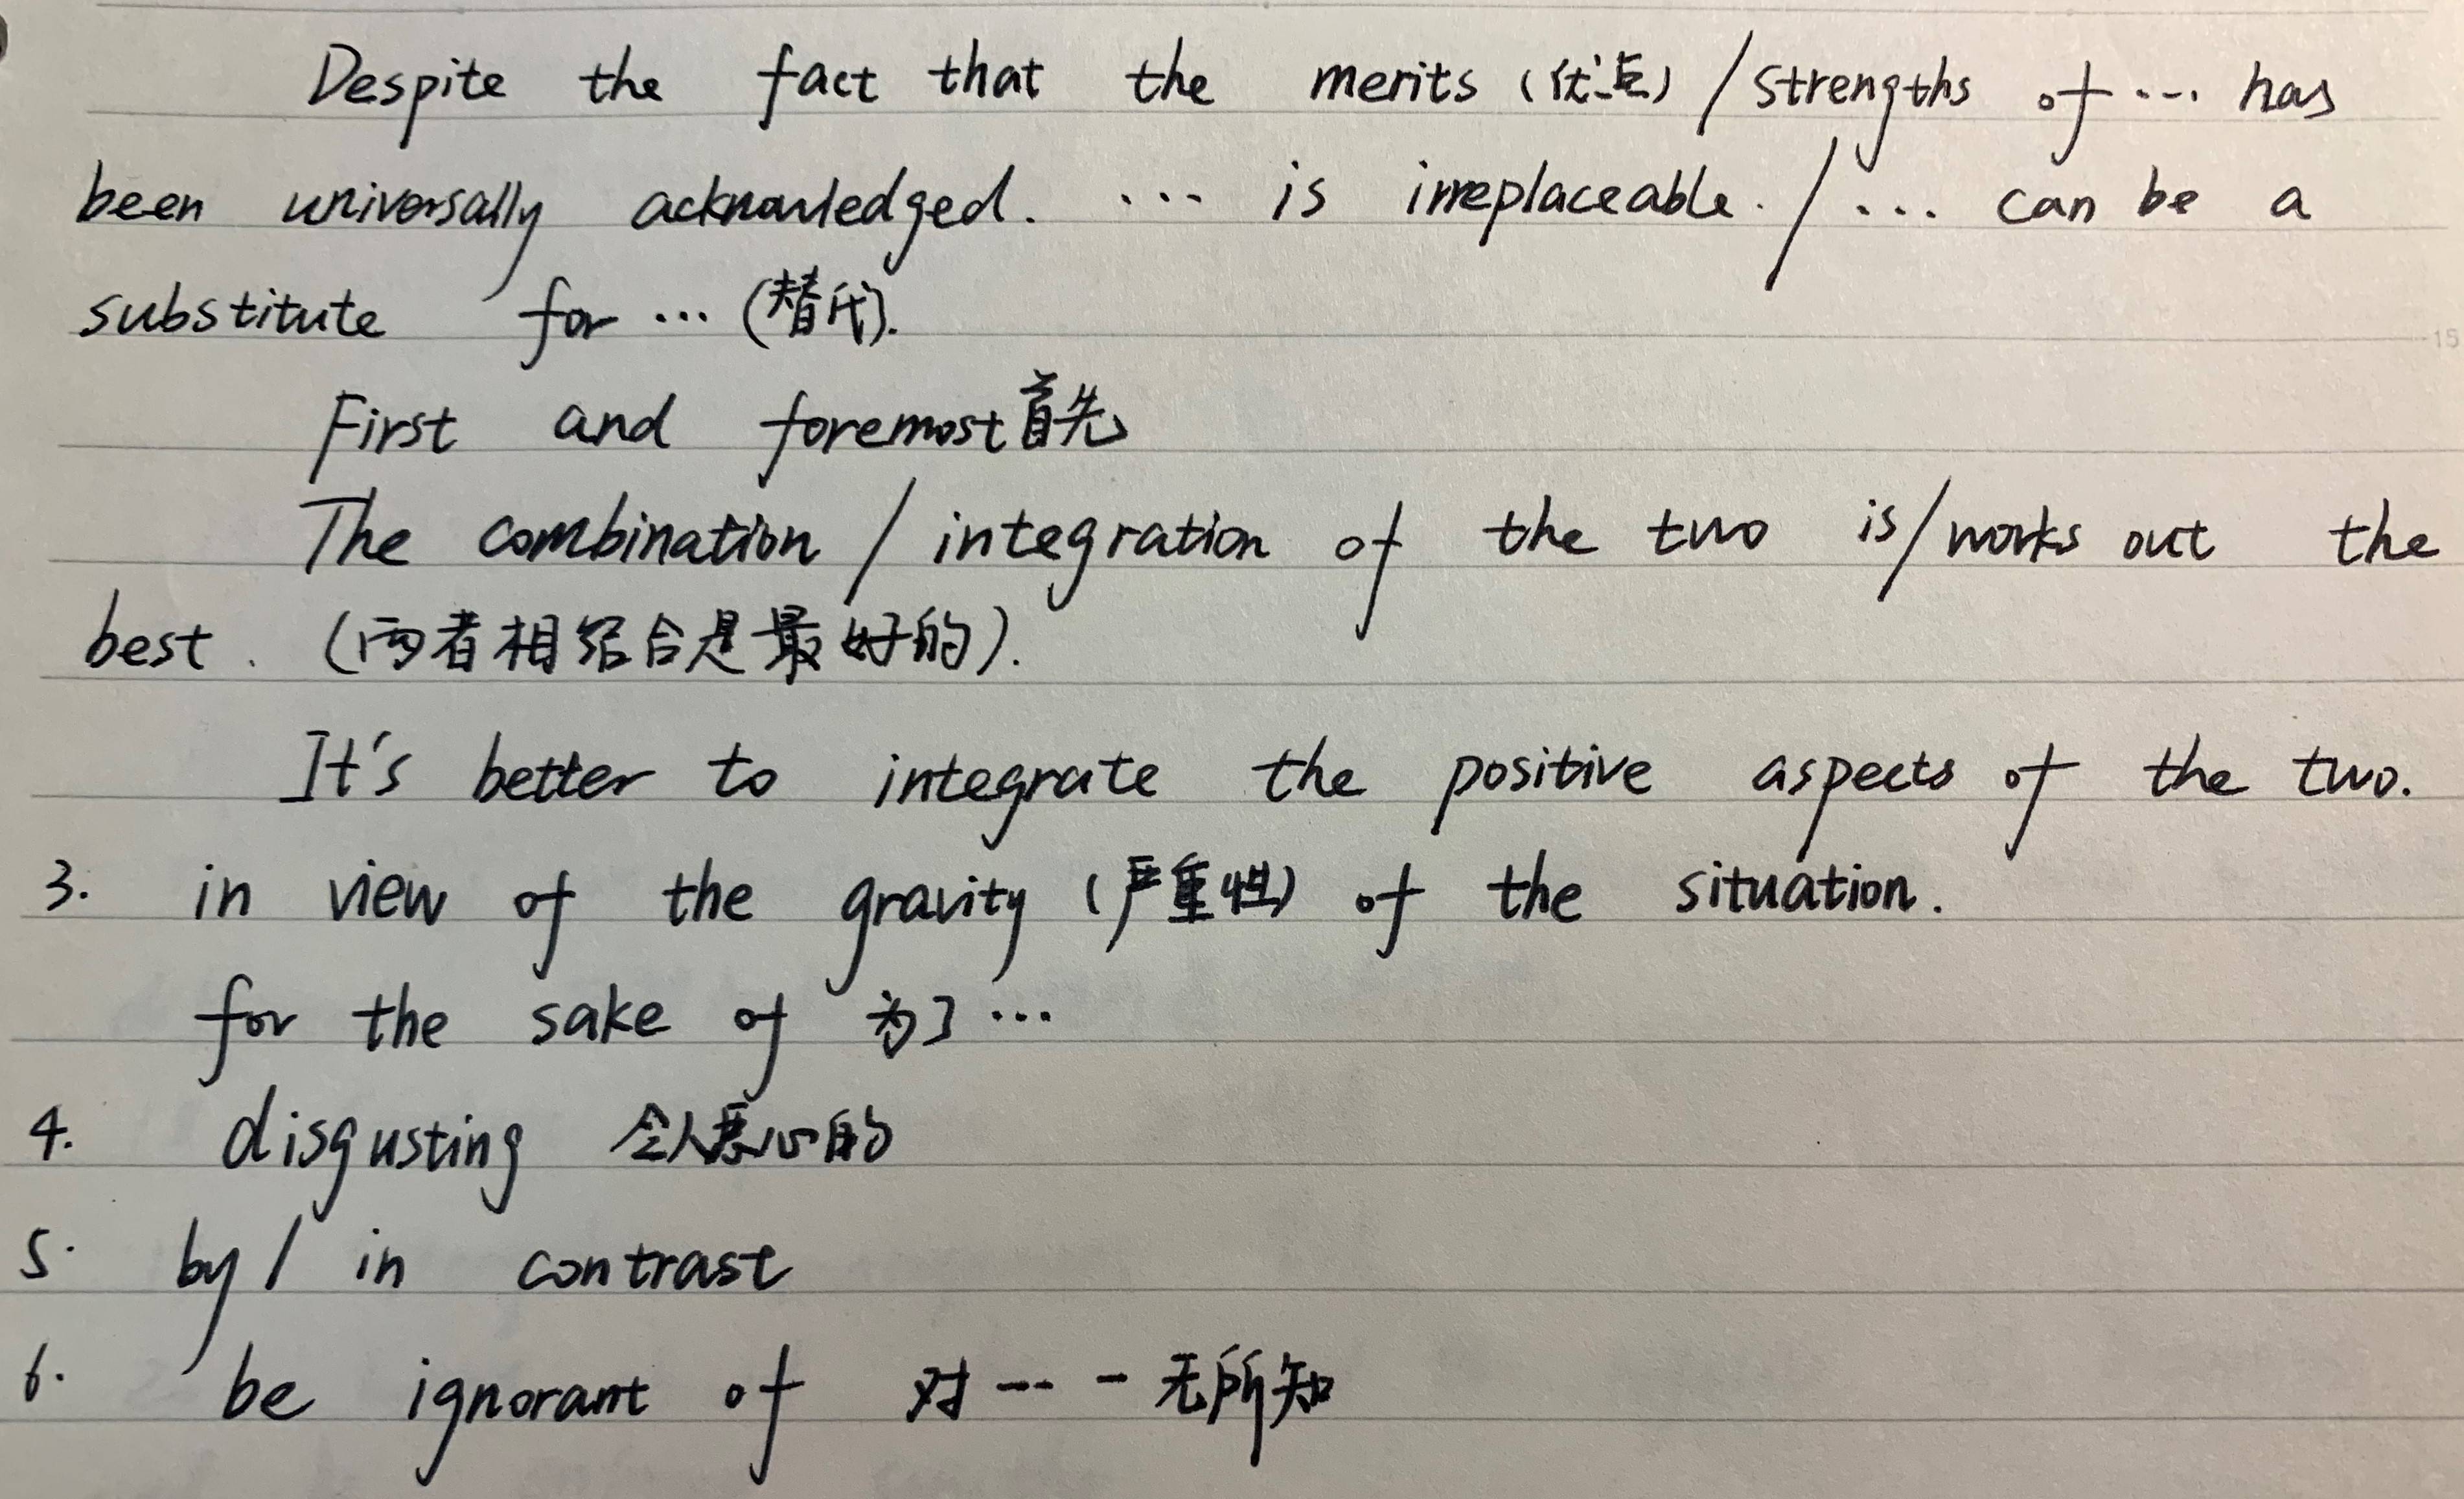 Despite the fact that the merits (优点) / strengths of ... has
been universally acknowledged. ... is irreplaceable. / ... can be a
substitute for ... (替代).
First and foremost 首先
The combination / integration of the two is / works out the
best. (两者相结合是最好的).
It's better to integrate the positive aspects of the two.
3. in view of the gravity (严重性) of the situation.
for the sake of 为了...
4. disgusting 令人恶心的
5. by / in contrast
6. be ignorant of 对... 一无所知